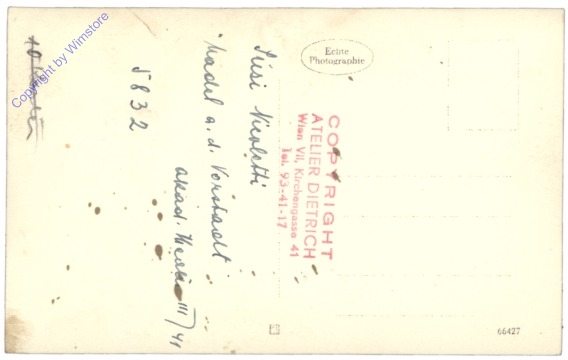 Echte
Photographie
Susi Nicoletti
"Mädel a. d. Vorstadt"
akad. III/41
5832
10
COPYRIGHT
ATELIER DIETRICH
Wien VII, Kirchengasse 41
Tel. 93-41-17
66427
Copyright by Wimstore